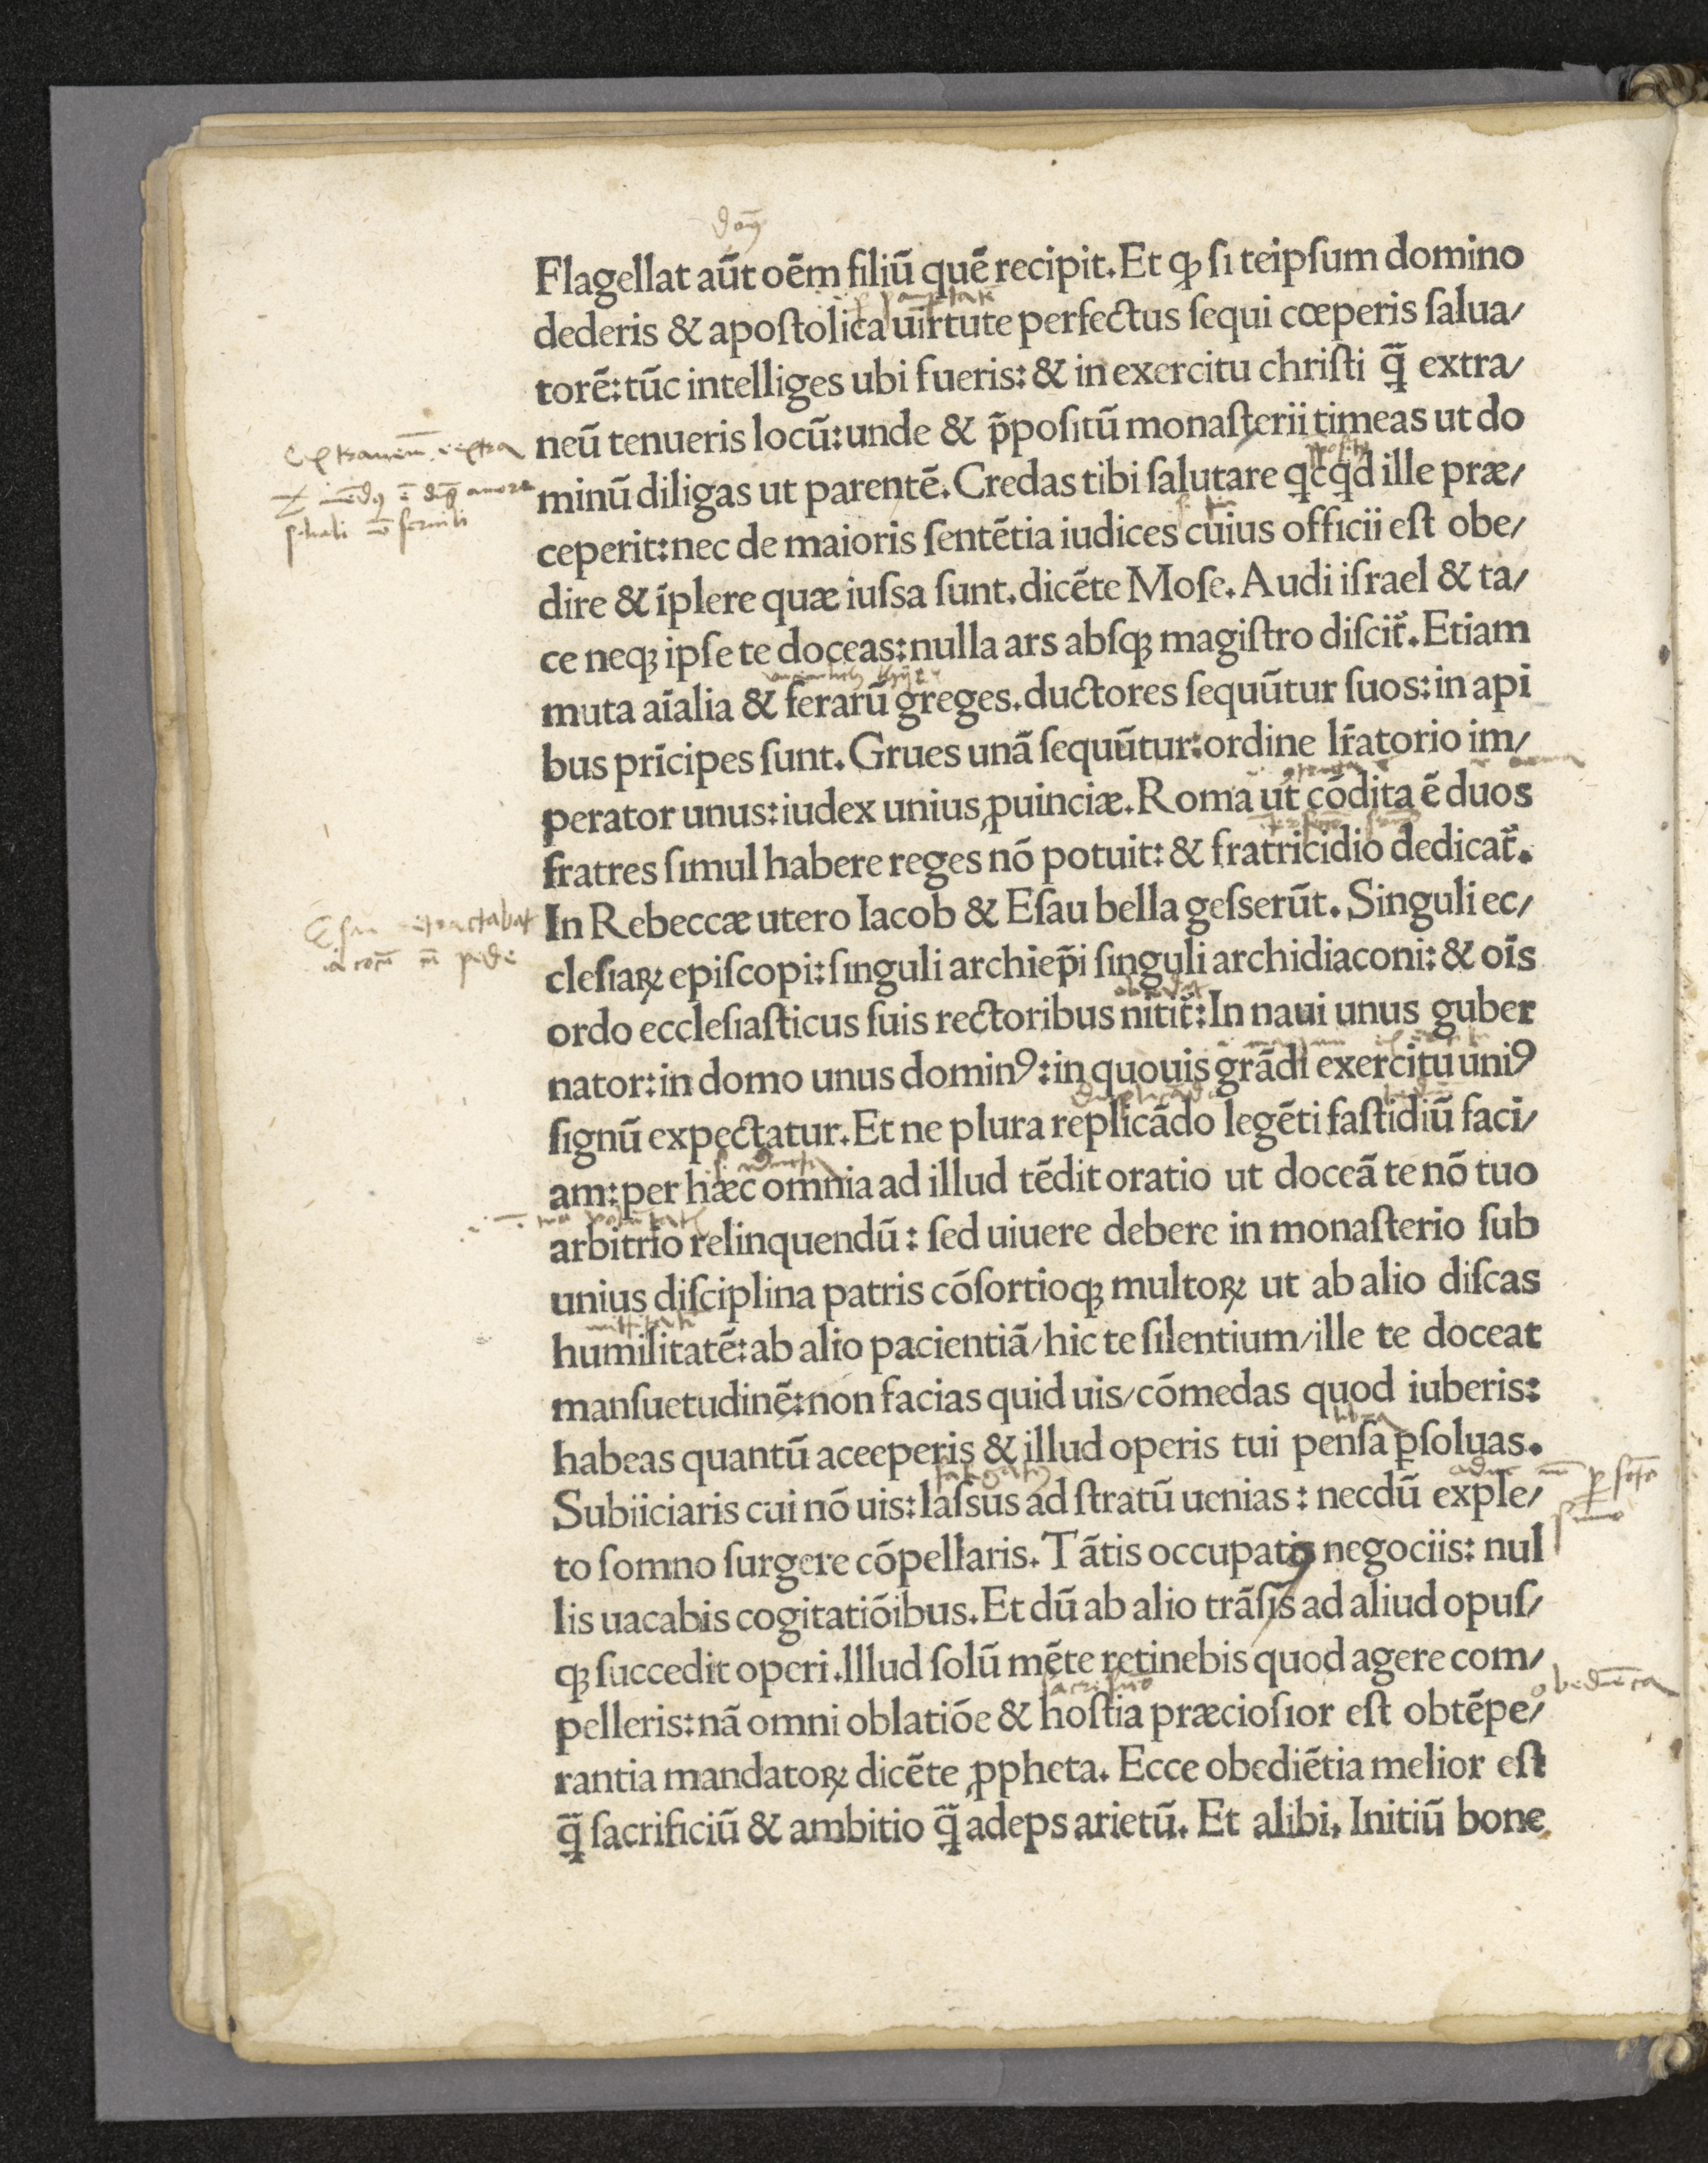 Flagellat aũt oẽm filiũ quẽ recipit. Et ꝙ ſi teipſum domino
dederis & apoſtolica uirtute perfectus ſequi cœperis ſalua/
torẽ: tũc intelliges ubi fueris: & in exercitu chriſti q̃ extra/
neũ tenueris locũ: unde & p̃poſitũ monaſterii timeas ut do
minũ diligas ut parentẽ. Credas tibi ſalutare qcqd ille præ/
ceperit: nec de maioris ſentẽtia iudices cuius officii eſt obe/
dire & ĩplere quæ iuſsa ſunt. dicẽte Moſe. Audi iſrael & ta/
ce neqꝫ ipſe te doceas: nulla ars abſqꝫ magiſtro diſcit᷑. Etiam
muta aĩalia & ferarũ greges. ductores ſequũtur ſuos: in api
bus prĩcipes ſunt. Grues unã ſequũtur: ordine lr̃atorio im/
perator unus: iudex unius ꝓuinciæ. Roma ut cõdita ẽ duos
fratres ſimul habere reges nõ potuit: & fratricidio dedicat᷑.
Eſau
In Rebeccæ utero Iacob & Eſau bella geſserũt. Singuli ec/
cleſiaꝝ epiſcopi: ſinguli archiep̃i ſinguli archidiaconi: & oĩs
ordo eccleſiaſticus ſuis rectoribus nitit᷑: In naui unus guber
nator: in domo unus dominꝰ: in quouis grãdi exercitu uniꝰ
ſignũ expectatur. Et ne plura replicãdo legẽti faſtidiũ faci/
am: per hæc omnia ad illud tẽdit oratio ut doceã te nõ tuo
arbitrio relinquendũ: ſed uiuere debere in monaſterio ſub
unius diſciplina patris cõſortioqꝫ multoꝝ ut ab alio diſcas
humilitatẽ: ab alio pacientiã/ hic te ſilentium/ ille te doceat
manſuetudinẽ: non facias quid uis/ cõmedas quod iuberis:
habeas quantũ aceeperis & illud operis tui penſa ꝑſoluas.
Subiiciaris cui nõ uis: laſsus ad ſtratũ uenias: necdũ exple/
to ſomno ſurgere cõpellaris. Tãtis occupatꝰ negociis: nul
lis uacabis cogitatiõibus. Et dũ ab alio trãſis ad aliud opuſ/
qꝫ ſuccedit operi. Illud ſolũ mẽte retinebis quod agere com/
pelleris: nã omni oblatiõe & hoſtia præcioſior eſt obtẽpe/
rantia mandatoꝝ dicẽte ꝓpheta. Ecce obediẽtia melior eſt
q̃ ſacrificiũ & ambitio q̃ adeps arietũ. Et alibi. Initiũ bone